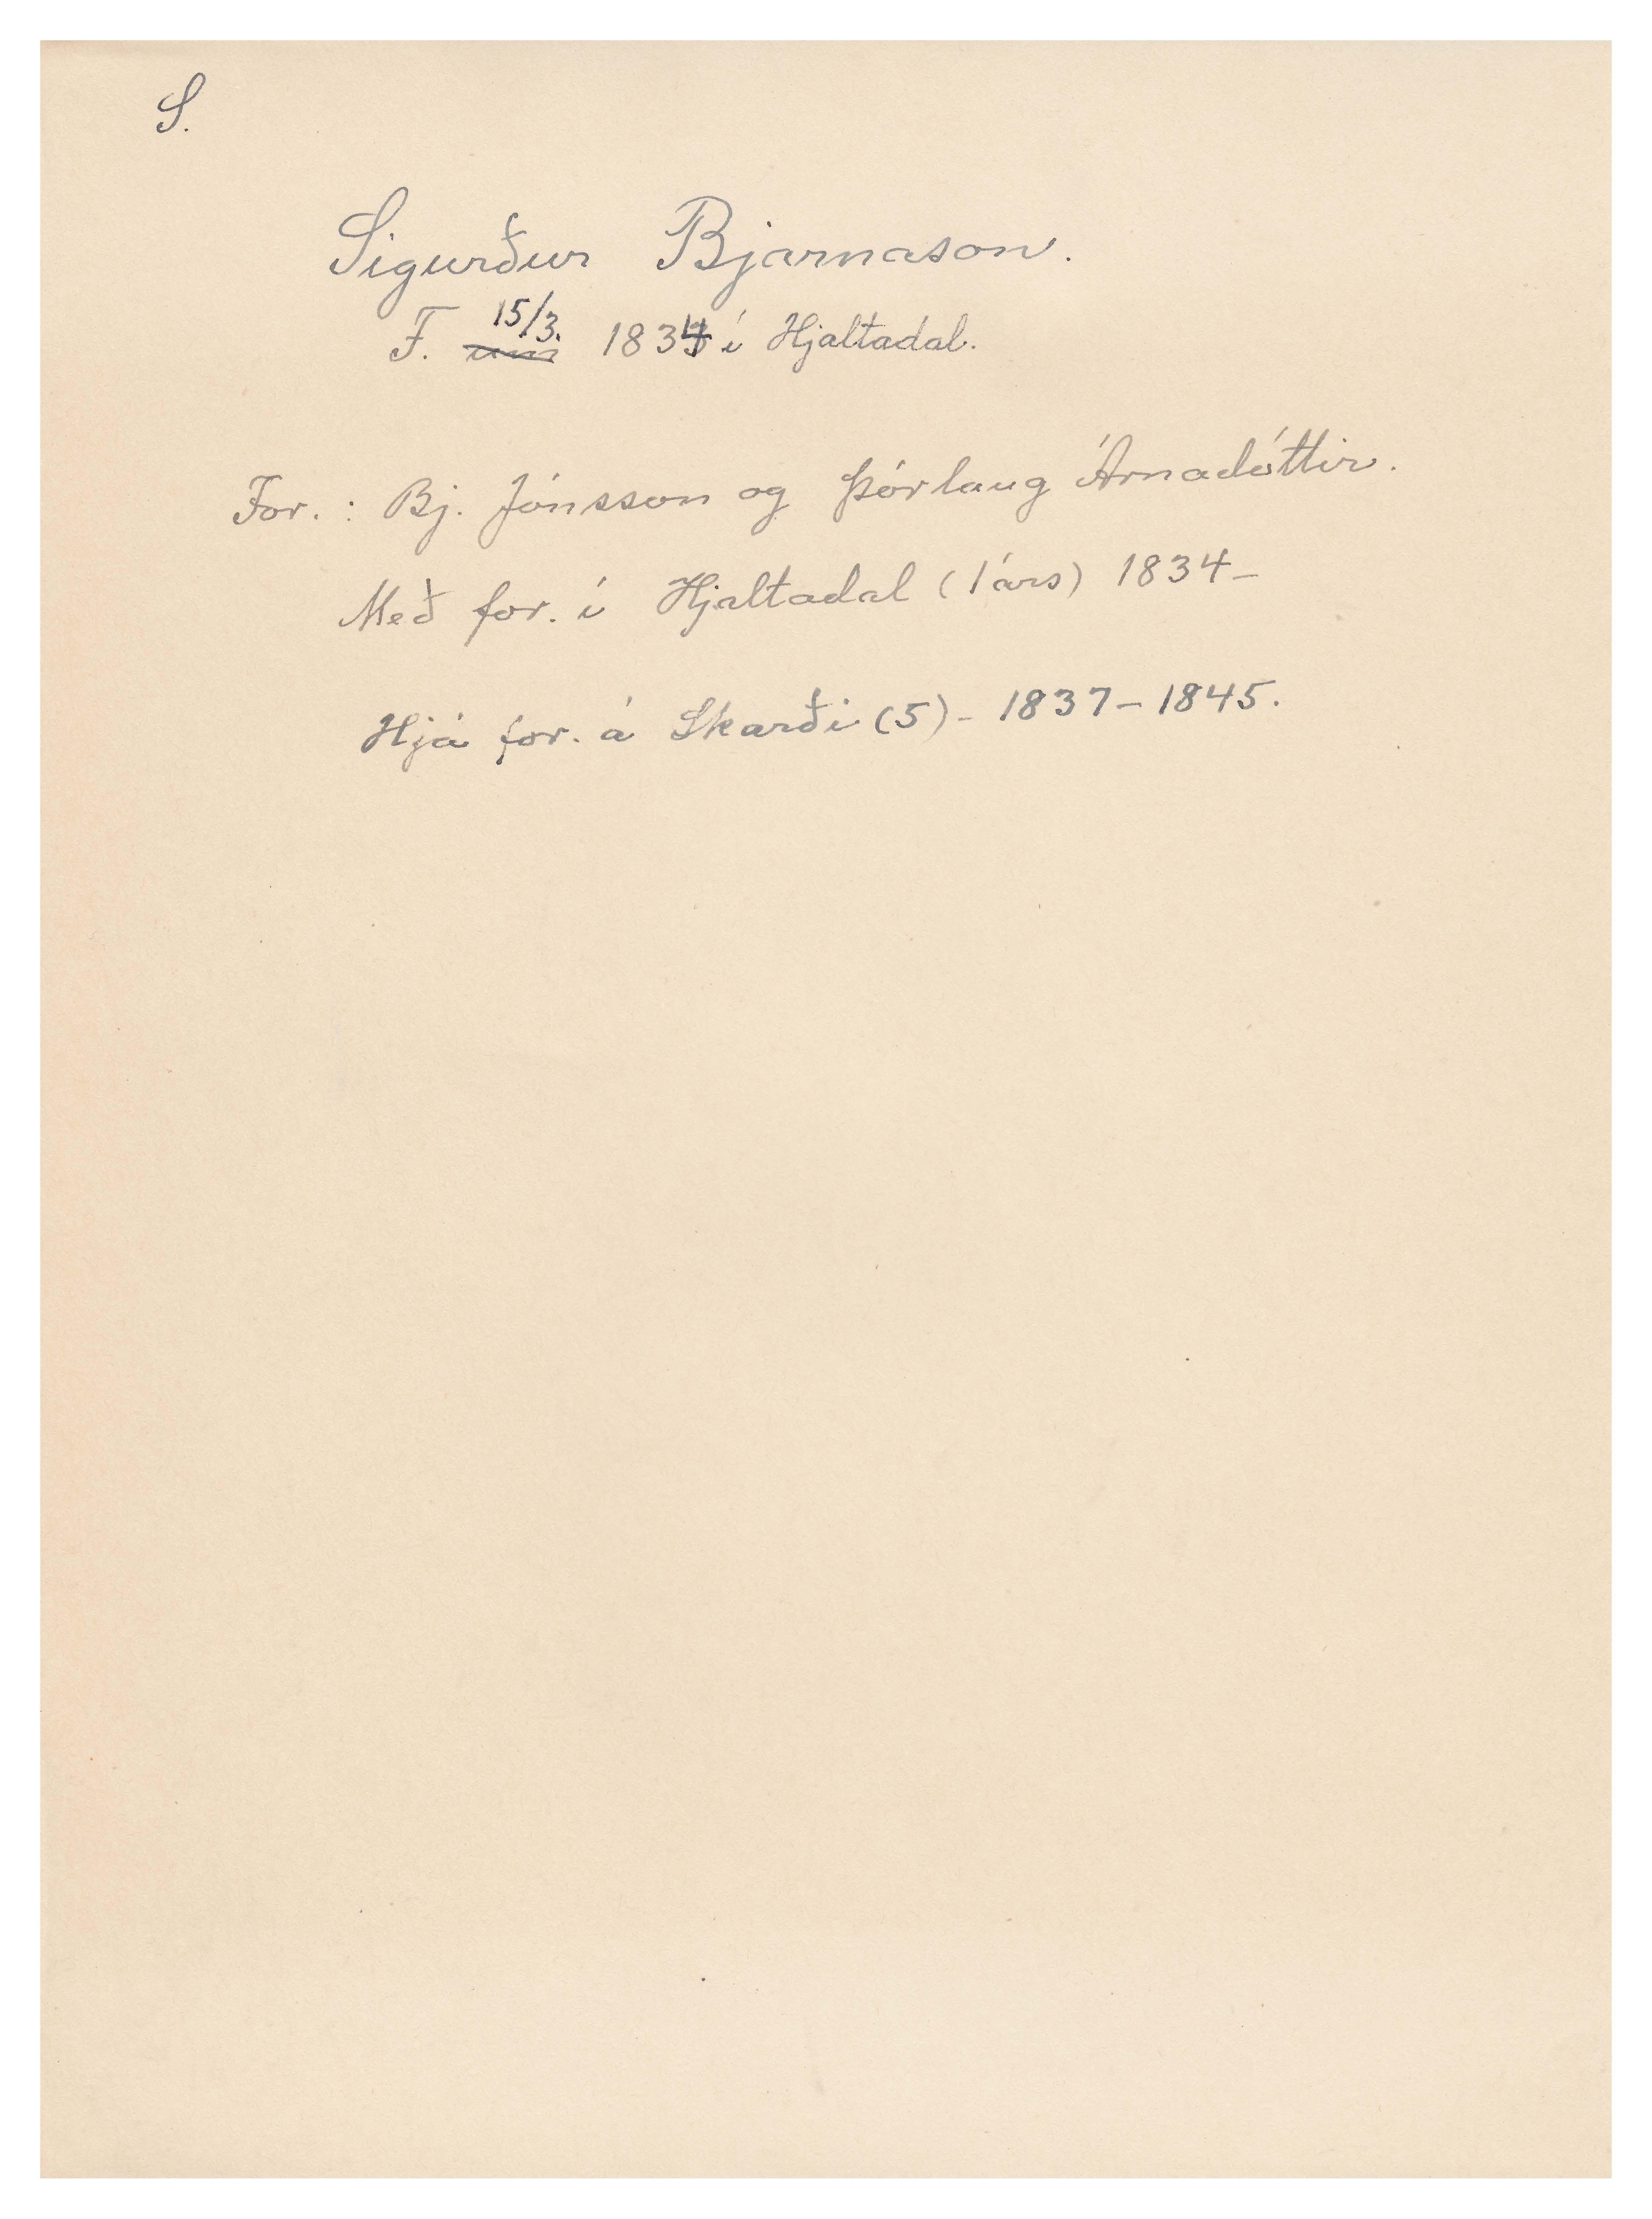 S.
Sigurður Bjarnason.
F. um 15/3. 1834 í Hjaltadal.
For.: Bj. Jónsson og Þórlaug Árnadóttir.
Með for. í Hjaltadal (1 árs) 1834 –
Hjá for. á Skarði (5) – 1837 – 1845.